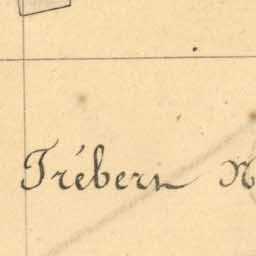 Trébern N